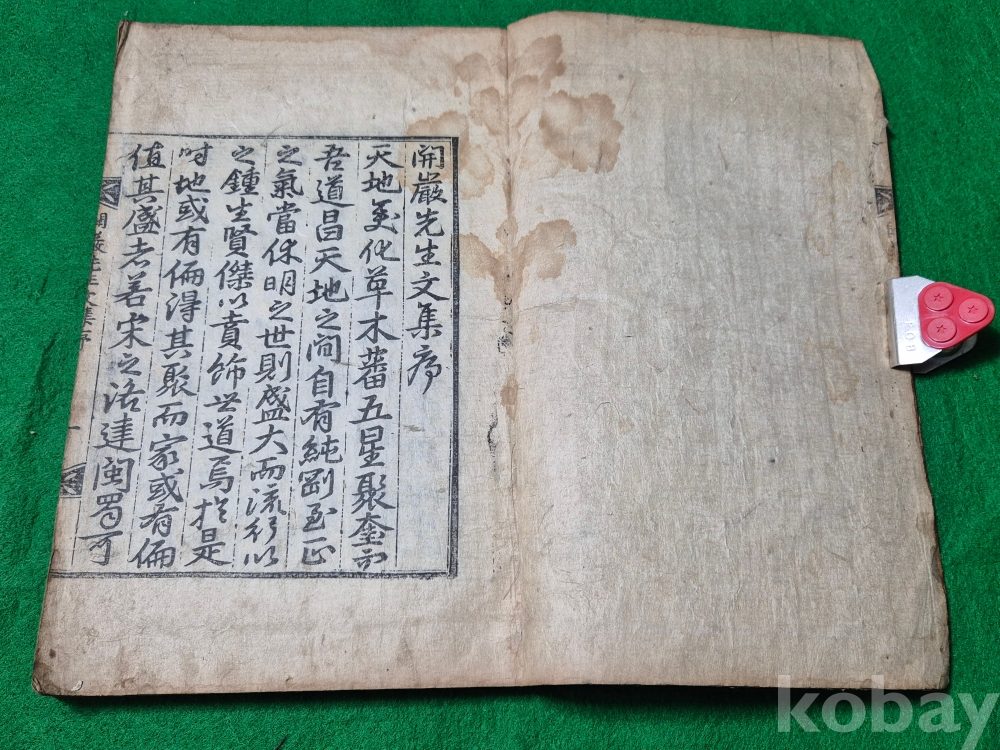 開巖先生文集序
天地變化草木蕃五星聚奎而
吾道昌天地之間自有純剛至正
之氣當休明之世則盛大而流行以
之鍾生賢傑以賁飾世道焉於是
時地或有偏得其聚而家或有偏
值其盛者若宋之洛建閩蜀可
開巖先生文集序
一
kobay